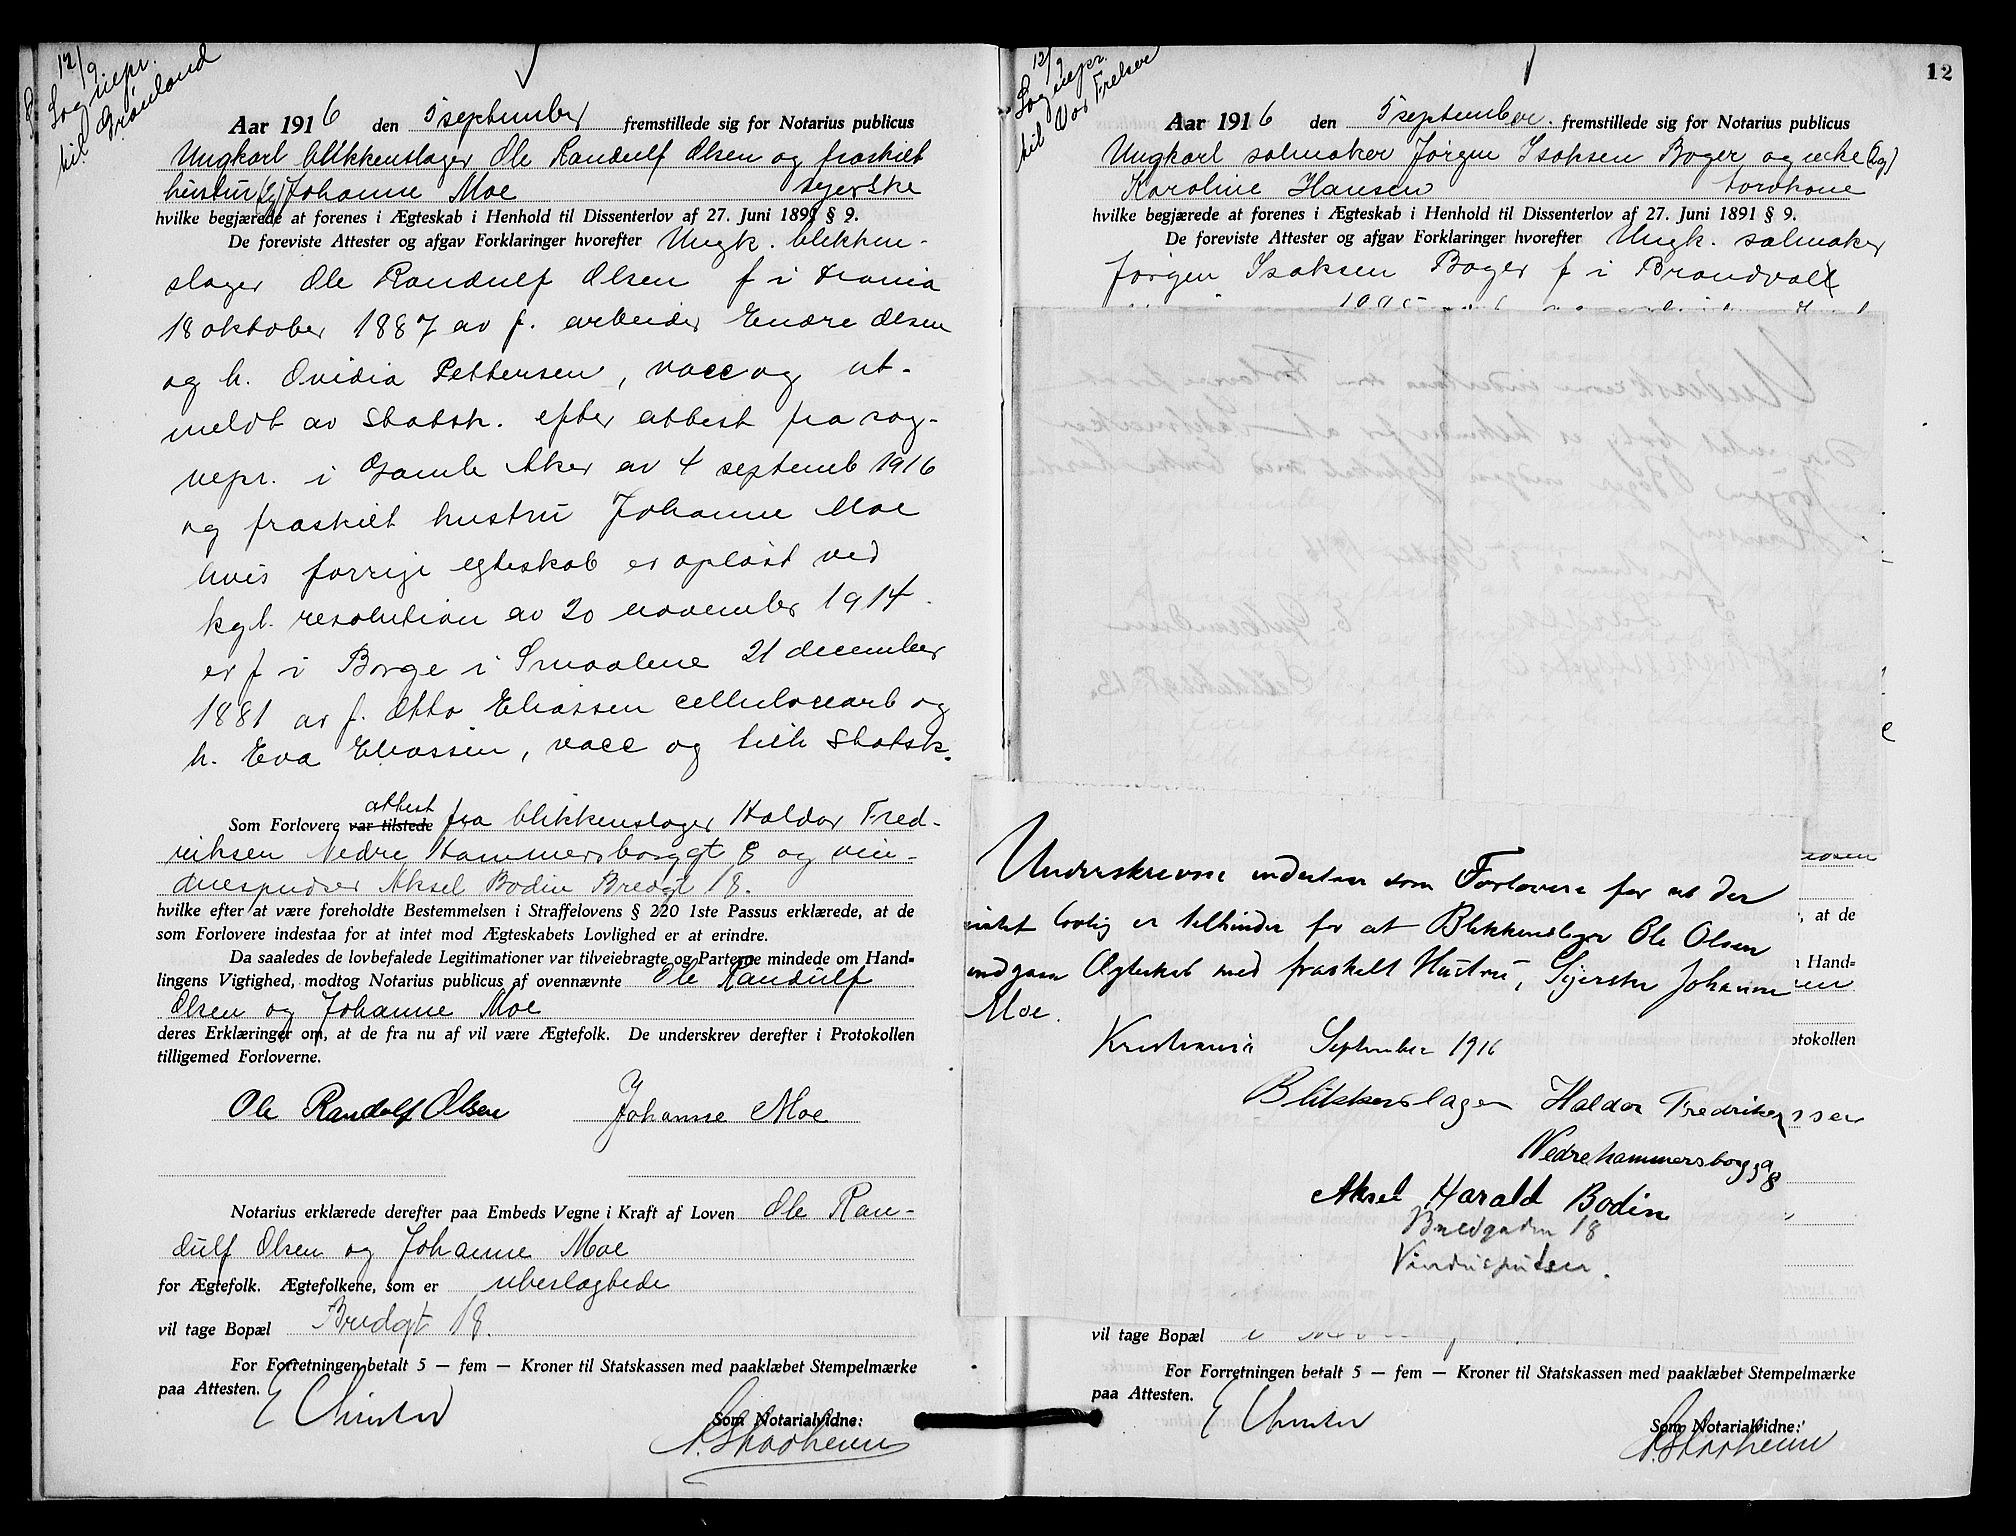 12/9
Sognepr.
til Grønland
Aar 1916 den 5 september fremstillede sig for Notarius publicus
Ungkarl blikkenslager Ole Randulf Olsen og fraskilt
hustru Johanne Moe syerske
hvilke begjærede at forenes i Ægteskab i Henhold til Dissenterlov af 27. Juni 1891 § 9.
De foreviste Attester og afgav Forklaringer hvorefter Ungk. blikken-
slager Ole Randulf Olsen f i Krania
18 oktober 1887 av f. arbeider Endre Olsen
og h. Ovidia Pettersen, vacc og ut-
meldt av Statsk. efter attest fra sog-
nepr. i Gamle Aker av 4 septemb 1916
og fraskilt hustru Johanne Moe
hvis forrige egteskab er opløst ved
kgl. resolution av 20 november 1914.
er f i Borge i Smaalene 21 december
1881 av f. Otto Eliassen cellulosearb og
h. Eva Eliassen, vacc og tilh Statsk.
attest
Som Forlovere var tilstede fra blikkenslager Haldor Fred-
riksen Nedre Hammersborggt 8 og vin-
duespudser Aksel Bodin Bredgt 18.
hvilke efter at være foreholdte Bestemmelsen i Straffelovens § 220 1ste Passus erklærede, at de
som Forlovere indestaa for at intet mod Ægteskabets Lovlighed er at erindre.
Da saaledes de lovbefalede Legitimationer var tilveiebragte og Parterne mindede om Hand-
lingens Vigtighed, modtog Notarius publicus af ovennævnte Ole Randulf
Olsen og Johanne Moe
deres Erklæringer om, at de fra nu af vil være Ægtefolk. De underskrev derefter i Protokollen
tilligemed Forloverne.
Ole Randolf Olsen Johanne Moe
Notarius erklærede derefter paa Embeds Vegne i Kraft af Loven Ole Ran-
dulf Olsen og Johanne Moe
for Ægtefolk. Ægtefolkene, som er ubeslægtede
vil tage Bopæl Bredgt 18.
For Forretningen betalt 5 — fem — Kroner til Statskassen med paaklæbet Stempelmærke
paa Attesten.
Som Notarialvidne:
12
12/9
Sognepr.
til Vor Frelser
Aar 1916 den 5 september. fremstillede sig for Notarius publicus
Ungkarl salmaker Jørgen Isaksen Boger og enke
Karoline Hansen
hvilke begjærede at forenes i Ægteskab i Henhold til Dissenterlov af 27. Juni 1891 § 9.
De foreviste Attester og afgav Forklaringer hvorefter Ungk. salmaker
Jørgen Isaksen Boger f i Brandval
Underskrevne indestaar som Forlovere for at der
intet lovlig er tilhinder for at Blikkenslager Ole Olsen
indgaar Ægteskab med fraskilt Hustru, Syerske Johanne
Moe.
Kristiania September 1916
Blikkenslager Haldor Fredrikssen
Nedrehammersborgga 8
Aksel Harald Bodin
Bredgaden 18
Vinduspudser.
, at de
Hand-
otokollen
vil tage Bopæl
For Forretningen betalt 5 — fem — Kroner til Statskassen med paaklæbet Stempelmærke
paa Attesten.
Som Notarialvidne: